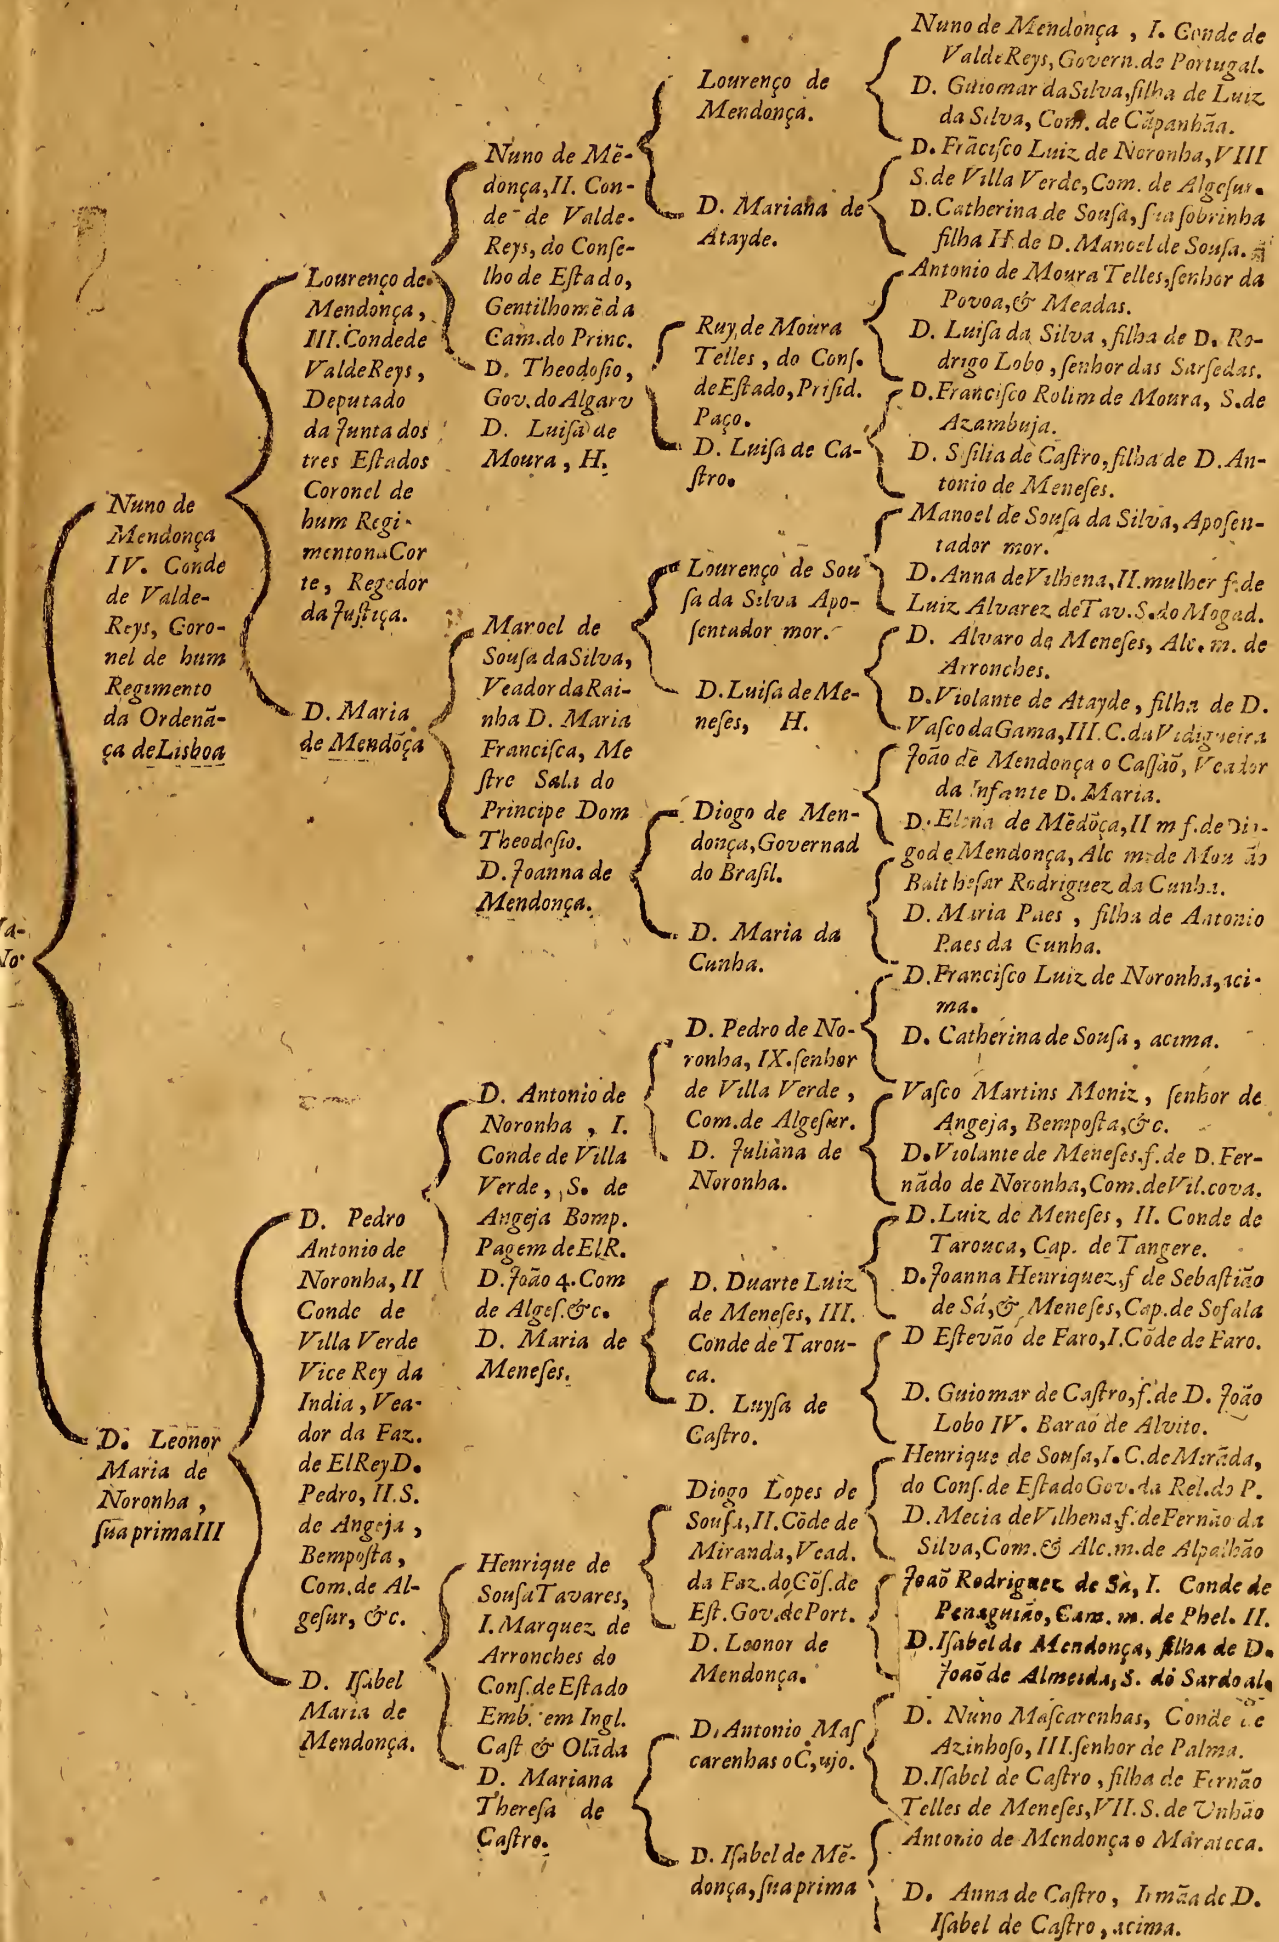 Nuno de
Mendonça
IV. Conde
de Valde-
Reys, Coro-
nel de hum
Regimento
da Ordenã-
ça deLisboa
D. Leonor
Maria de
Noronha ,
ſua primaIII
Lourenço de
Mendonça ,
III.Condede
ValdeReys ,
Deputado
da Junta dos
tres Eſtados
Coronel de
hum Regi-
mentonaCor
te, Regedor
da Juſtiça.
D. Maria
de Mendõça
D. Pedro
Antonio de
Noronha, II
Conde de
Villa Verde
Vice Rey da
India , Vea-
dor da Faz.
de ElReyD.
Pedro, II.S.
de Angeja ,
Bempoſta,
Com.de Al-
geſur, &c.
D. Iſabel
Maria de
Mendonça.
Nuno de Mẽ-
donça,II. Con-
de de Valde-
Reys, do Conſe-
lho de Eſtado,
Gentilhomẽda
Cam.do Princ.
D. Theodoſio,
Gov.do Algarv
D. Luiſa de
Moura , H.
Maroel de
Souſa daSilva,
VeadordaRai-
nha D. Maria
Franciſca, Me
ſtre Sala do
Principe Dom
Theodoſio.
D. Joanna de
Mendonça.
D. Antonio de
Noronha , I.
Conde de Villa
Verde, S. de
Angeja Bomp.
Pagem deElR.
D.João 4.Com
de Algeſ.&c.
D. Maria de
Meneſes.
Henrique de
SouſaTavares,
I.Marquez de
Arronches do
Conſ.de Eſtado
Emb. em Ingl.
Caſt & Olãda
D. Mariana
Thereſa de
Caſtro.
Lourenço de
Mendonça.
D. Mariana de
Atayde.
Ruy de Moura
Telles , do Conſ.
deEſtado,Priſid.
Paço.
D. Luiſa de Ca-
ſtro.
Lourenço de Sou
ſa da Silva Apo-
ſentador mor.
D.Luiſa de Me-
neſes, H.
Diogo de Men-
donça,Governad
do Braſil.
D. Maria da
Cunha.
D. Pedro de No-
ronha, IX.ſenhor
de Villa Verde ,
Com.de Algeſur.
D. Juliana de
Noronha.
D. Duarte Luiz
de Meneſes, III.
Conde de Tarou-
ca.
D. Luyſa de
Caſtro.
Diogo Lopes de
Souſa,II.Cõde de
Miranda, Vead.
da Faz.do Cõſ.de
Eſt.Gov.de Port.
D. Leonor de
Mendonça.
D. Antonio Maſ
carenhas oC,ujo.
D. Iſabel de Mẽ-
donça, ſuaprima
Nuno de Mendonça , I. Conde de
ValdeReys, Govern.de Portugal.
D. Guiomar daSilva,filha de Luiz
da Silva, Com. de Cãpanhãa.
D. Frãciſco Luiz de Noronha,VIII
S.de Villa Verde,Com. de Algeſur.
D.Catherina de Souſa, ſua ſobrinha
filha H.de D.Manoel de Souſa.
Antonio de Moura Telles,ſenhor da
Povoa,& Meadas.
D. Luiſa da Silva , filha de D. Ro-
drigo Lobo , ſenhor das Sarſedas.
D.Franciſco Rolim de Moura, S.de
Azambuja.
D. Sſilia de Caſtro,filha de D.An-
tonio de Meneſes.
Manoel de Souſa da Silva, Apoſen-
tador mor.
D.Anna deVilhena,II.mulher f.de
Luiz Alvarez deTav.S.do Mogad.
D. Alvaro de Meneſes, Alc. m. de
Arronches.
D.Violante de Atayde , filha de D.
VaſcodaGama,III.C.daVidigueira
João de Mendonça o Caſſão, Veador
da Infante D. Maria.
D. Elena de Mẽdõça,II m f.de Dio-
gode Mendonça, Alc m.de Mou ão
Balt heſar Rodriguez da Cunha.
D. Maria Paes , filha de Antonio
Paes da Cunha.
D.Franciſco Luiz de Noronha,aci-
ma.
D. Catherina de Souſa , acima.
Vaſco Martins Moniz , ſenhor de
Angeja, Bempoſta,&c.
D.Violante de Meneſes.f.de D.Fer-
nãdo de Noronha,Com.deVil.cova.
D.Luiz de Meneſes , II. Conde de
Tarouca, Cap. de Tangere.
D.Joanna Henriquez,f de Sebaſtião
de Sá,& Meneſes,Cap.de Sofala
D Eſtevão de Faro,I.Cõde de Faro.
D. Guiomar de Caſtro,f.de D. João
Lobo IV. Baraõ de Alvito.
Henrique de Souſa,I.C.deMirãda,
do Conſ.de EſtadoGov.da Rel.do P.
D. Mecia deVilhena,f.deFernão da
Silva,Com.& Alc.m.de Alpalhão
Joaõ Rodriguez de Sà, I. Conde de
Penaguião, Cam. m. de Phel. II.
D.Iſabel de Mendonça, filha de D.
Joaõ de Almeida, S. do Sardoal.
D. Nuno Maſcarenhas, Conde de
Azinhoſo, III.ſenhor de Palma.
D.Iſabel de Caſtro , filha de Fernão
Telles de Meneſes,VII. S.de Unhão
Antonio de Mendonça o Marateca.
D. Anna de Caſtro, Irmãa de D.
Iſabel de Caſtro , acima.